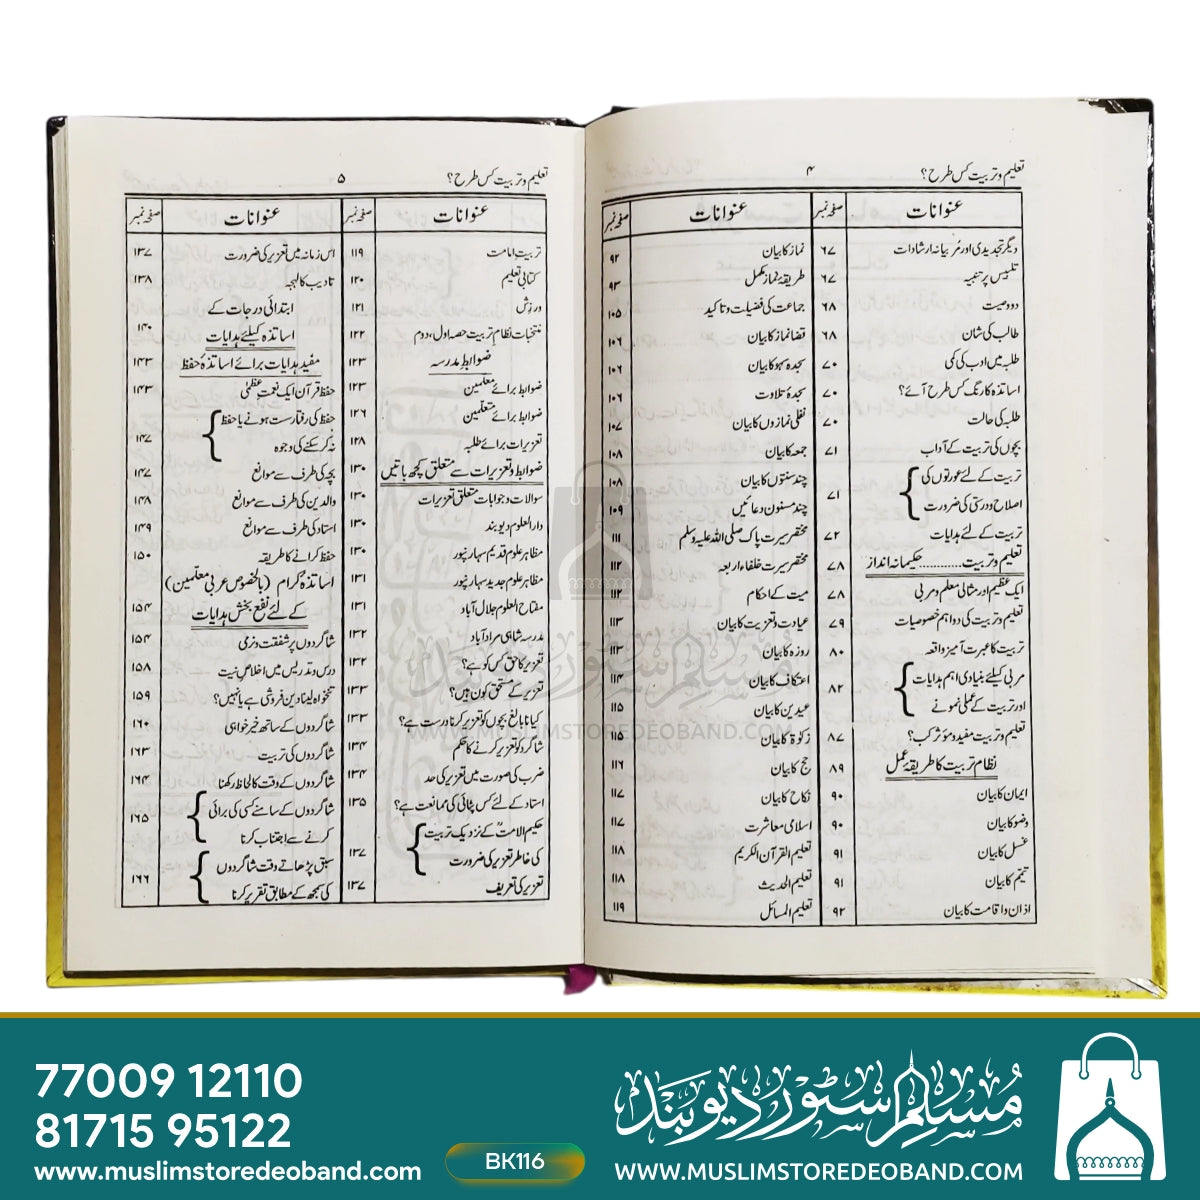 تعلیم و تربیت کس طرح؟ ۴
عنوانات صفحہ نمبر
دیگر تجدیدی اور مربیانہ ارشادات ۶۷
تلبیس پر تنبیہ ۶۷
دو وصیت ۶۸
طالب کی شان ۶۸
طلبہ میں ادب کی کمی ۷۰
اساتذہ کا رنگ کس طرح آئے؟ ۷۰
طلبہ کی حالت ۷۰
بچوں کی تربیت کے آداب ۷۱
تربیت کے لئے عورتوں کی
اصلاح و درستی کی ضرورت ۷۱
تربیت کے لئے ہدایات ۷۲
تعلیم و تربیت............حکیمانہ انداز ۷۸
ایک عظیم اور مثالی معلم و مربی ۷۸
تعلیم و تربیت کی دو اہم خصوصیات ۷۹
تربیت کا عبرت آمیز واقعہ ۸۰
مربی کیلئے بنیادی اہم ہدایات
اور تربیت کے عملی نمونے ۸۲
تعلیم و تربیت مفید و مؤثر کب؟ ۸۷
نظام تربیت کا طریقۂ عمل ۸۹
ایمان کا بیان ۹۰
وضو کا بیان ۹۰
غسل کا بیان ۹۱
تیمم کا بیان ۹۱
اذان و اقامت کا بیان ۹۲
عنوانات صفحہ نمبر
نماز کا بیان ۹۲
طریقۂ نماز مکمل ۹۳
جماعت کی فضیلت و تاکید ۱۰۵
قضا نماز کا بیان ۱۰۶
سجدہ سہو کا بیان ۱۰۶
سجدۂ تلاوت ۱۰۶
نفلی نمازوں کا بیان ۱۰۷
جمعہ کا بیان ۱۰۸
چند سنتوں کا بیان ۱۰۸
چند مسنون دعائیں ۱۰۹
مختصر سیرت پاک صلی اللہ علیہ وسلم ۱۱۱
مختصر سیرت خلفاء اربعہ ۱۱۲
میت کے احکام ۱۱۲
عیادت و تعزیت کا بیان ۱۱۳
روزہ کا بیان ۱۱۳
اعتکاف کا بیان ۱۱۴
عیدین کا بیان ۱۱۵
زکوٰۃ کا بیان ۱۱۵
حج کا بیان ۱۱۶
نکاح کا بیان ۱۱۷
اسلامی معاشرت ۱۱۷
تعلیم القرآن الکریم ۱۱۸
تعلیم الحدیث ۱۱۸
تعلیم المسائل ۱۱۹
تعلیم و تربیت کس طرح؟ ۵
عنوانات صفحہ نمبر
تربیت امامت ۱۱۹
کتابی تعلیم ۱۲۰
ورزش ۱۲۱
منتخبات نظام تربیت حصہ اول، دوم ۱۲۲
ضوابط مدرسہ ۱۲۳
ضوابط برائے معلمین ۱۲۳
ضوابط برائے متعلمین ۱۲۶
تعزیرات برائے طلبہ ۱۲۸
ضوابط و تعزیرات سے متعلق کچھ باتیں ۱۳۰
سوالات و جوابات متعلق تعزیرات ۱۳۰
دارالعلوم دیوبند ۱۳۰
مظاہر علوم قدیم سہارنپور ۱۳۰
مظاہر علوم جدید سہارنپور ۱۳۱
مفتاح العلوم جلال آباد ۱۳۱
مدرسہ شاہی مرادآباد ۱۳۲
تعزیر کا حق کس کو ہے؟ ۱۳۲
تعزیر کے مستحق کون ہیں؟ ۱۳۳
کیا نابالغ بچوں کو تعزیر کرنا درست ہے؟ ۱۳۳
شاگرد کو تعزیر کرنے کا حکم ۱۳۴
ضرب کی صورت میں تعزیر کی حد ۱۳۴
استاد کے لئے کس پٹائی کی ممانعت ہے؟ ۱۳۵
حکیم الامتؒ کے نزدیک تربیت
کی خاطر تعزیر کی ضرورت ۱۳۷
تعزیر کی تعریف ۱۳۷
عنوانات صفحہ نمبر
اس زمانہ میں تعزیر کی ضرورت ۱۳۷
تادیب کا لہجہ ۱۳۸
ابتدائی درجات کے
اساتذہ کیلئے ہدایات ۱۴۰
مفید ہدایات برائے اساتذۂ حفظ ۱۴۳
حفظ قرآن ایک نعمت عظمیٰ ۱۴۳
حفظ کی رفتار سست ہونے یا حفظ
نہ کر سکنے کی وجوہ ۱۴۷
بچہ کی طرف سے موانع ۱۴۷
والدین کی طرف سے موانع ۱۴۸
استاد کی طرف سے موانع ۱۴۹
حفظ کرانے کا طریقہ ۱۵۰
اساتذہ کرام (بالخصوص عربی معلمین)
کے لئے نفع بخش ہدایات ۱۵۴
شاگردوں پر شفقت و نرمی ۱۵۴
درس و تدریس میں اخلاص نیت ۱۵۸
تنخواہ لینا دین فروشی ہے یا نہیں؟ ۱۵۹
شاگردوں کے ساتھ خیر خواہی ۱۶۰
شاگردوں کی تربیت ۱۶۳
شاگردوں کے وقت کا لحاظ رکھنا ۱۶۴
شاگردوں کے سامنے کسی کی برائی
کرنے سے اجتناب کرنا ۱۶۵
سبق پڑھاتے وقت شاگردوں
کی سمجھ کے مطابق تقریر کرنا ۱۶۶
مسلم سٹور دیوبند
WWW.MUSLIMSTOREDEOBAND.COM
77009 12110
81715 95122
www.muslimstoredeoband.com
BK116
مسلم سٹور دیوبند
WWW.MUSLIMSTOREDEOBAND.COM